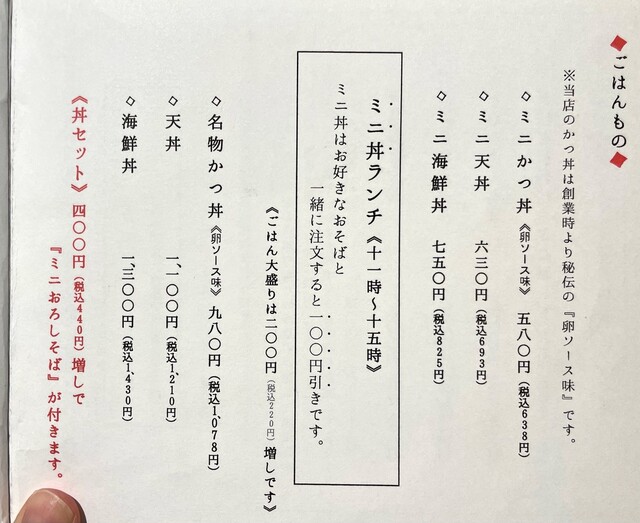 ◆ごはんもの◆
※当店のかつ丼は創業時より秘伝の『卵ソース味』です。
◇ミニかつ丼《卵ソース味》 五八〇円(税込638円)
◇ミニ天丼 六三〇円(税込693円)
◇ミニ海鮮丼 七五〇円(税込825円)
ミニ丼ランチ《十一時～十五時》
ミニ丼はお好きなおそばと
一緒に注文すると一〇〇円引きです。
《ごはん大盛りは二〇〇円(税込220円)増しです》
◇名物かつ丼《卵ソース味》 九八〇円(税込1,078円)
◇天丼 一、一〇〇円(税込1,210円)
◇海鮮丼 一、三〇〇円(税込1,430円)
《丼セット》四〇〇円(税込440円)増しで
『ミニおろしそば』が付きます。